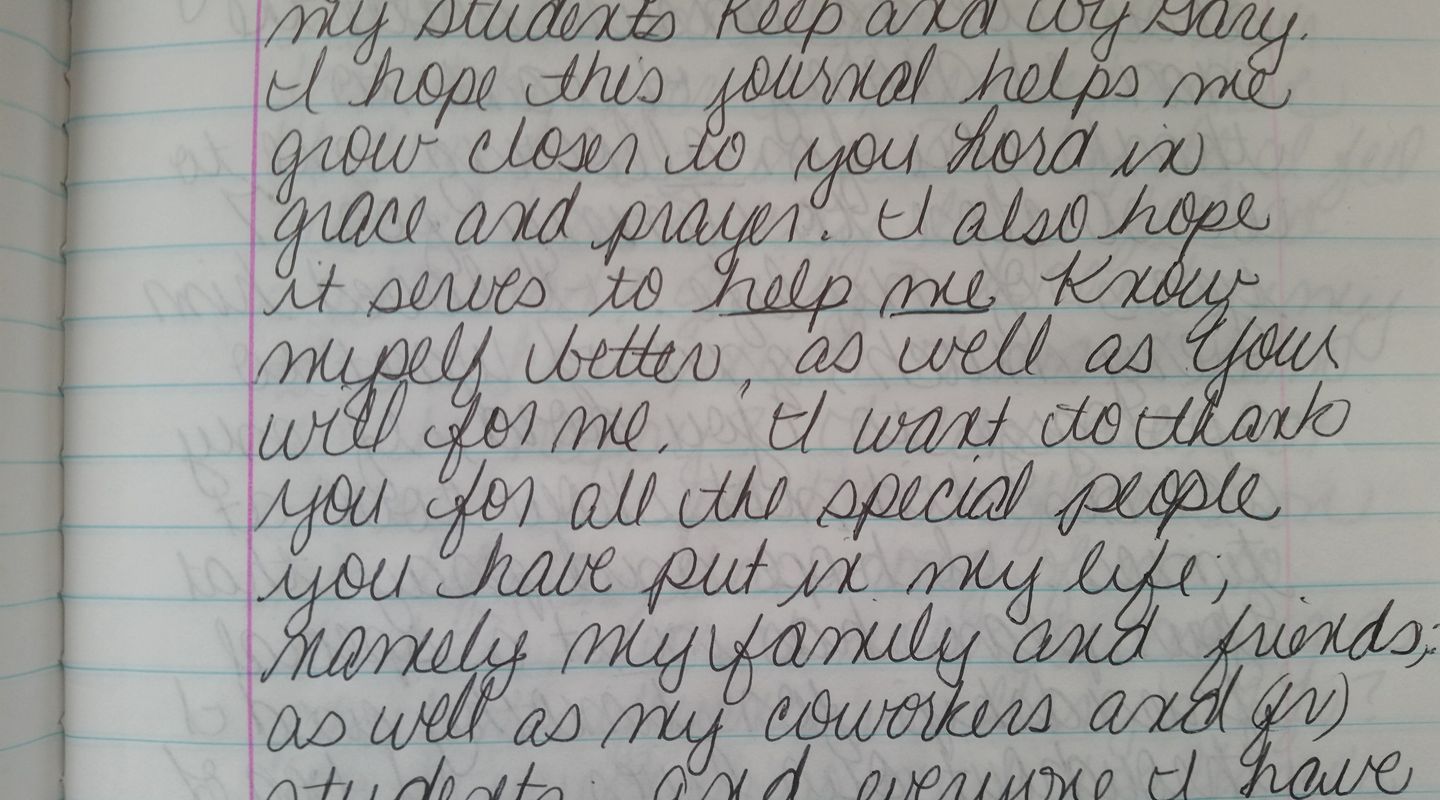 my students keep and by Gary.
I hope this journal helps me
grow closer to you Lord in
grace and prayer. I also hope
it serves to help me know
myself better, as well as your
will for me. I want to thank
you for all the special people
you have put in my life;
namely my family and friends;
as well as my coworkers and
students; and everyone I have